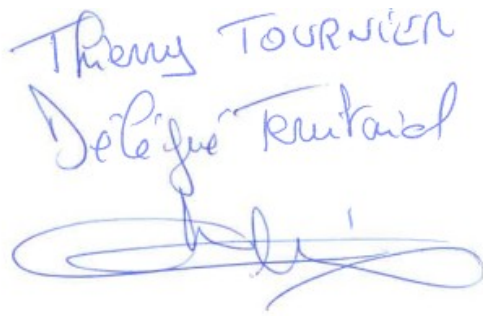 Thierry TOURNIER
Délégué Territorial